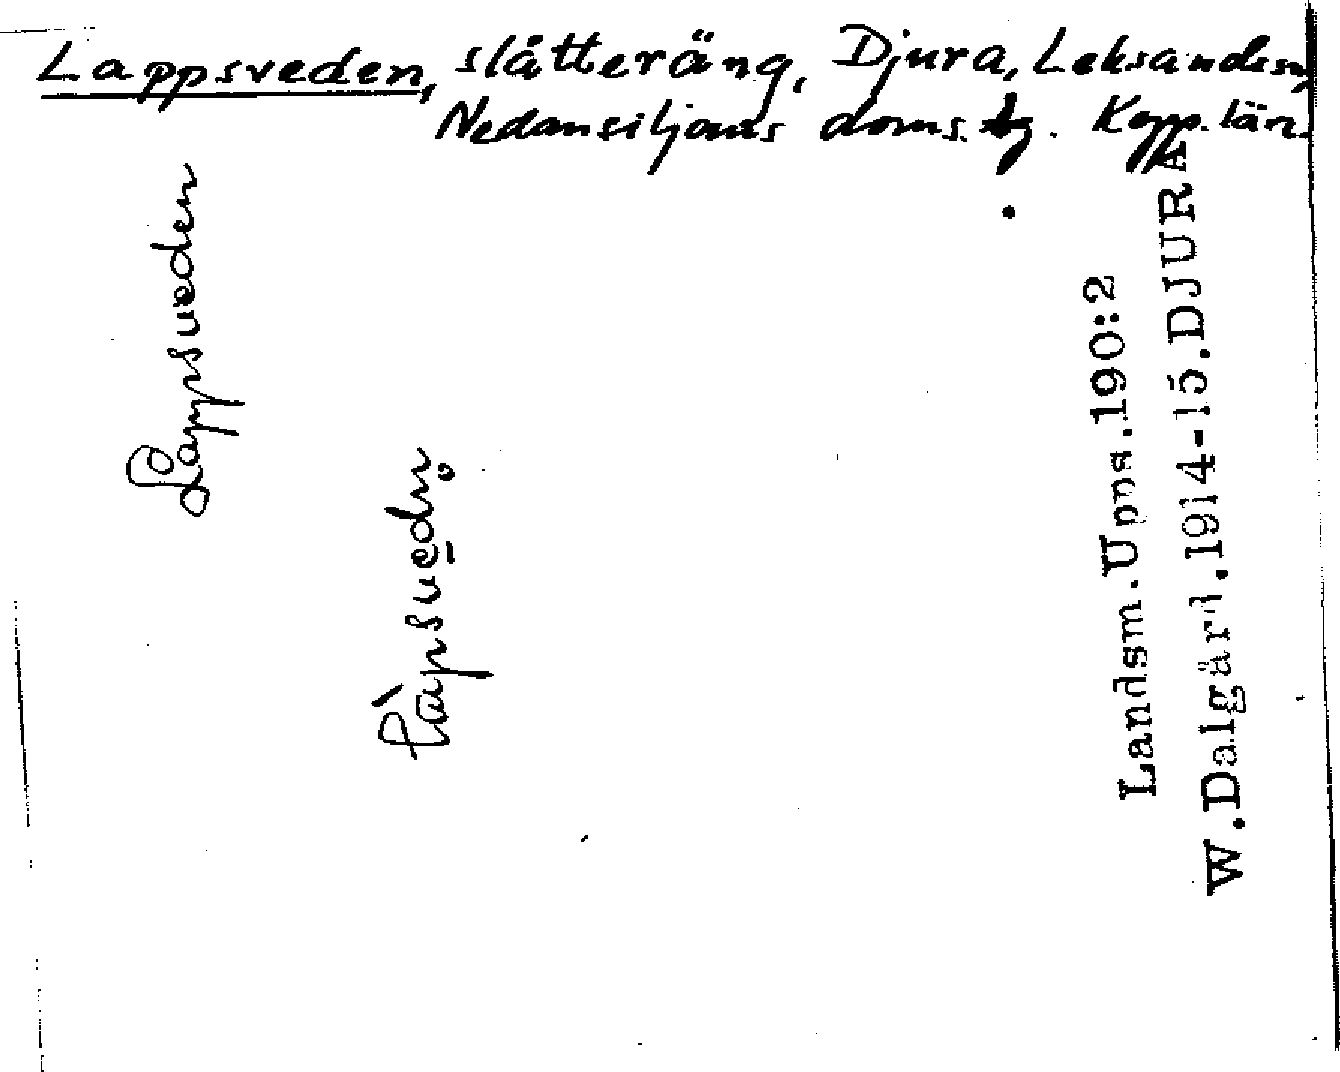 Lappsveden, slåtteräng, Djura, Leksands sn,
Nedansiljans doms. tg. Kopp. län.
Lappsveden
Landsm. Upps. 190:2
W. Dalgärd. 1914-15. DJURA